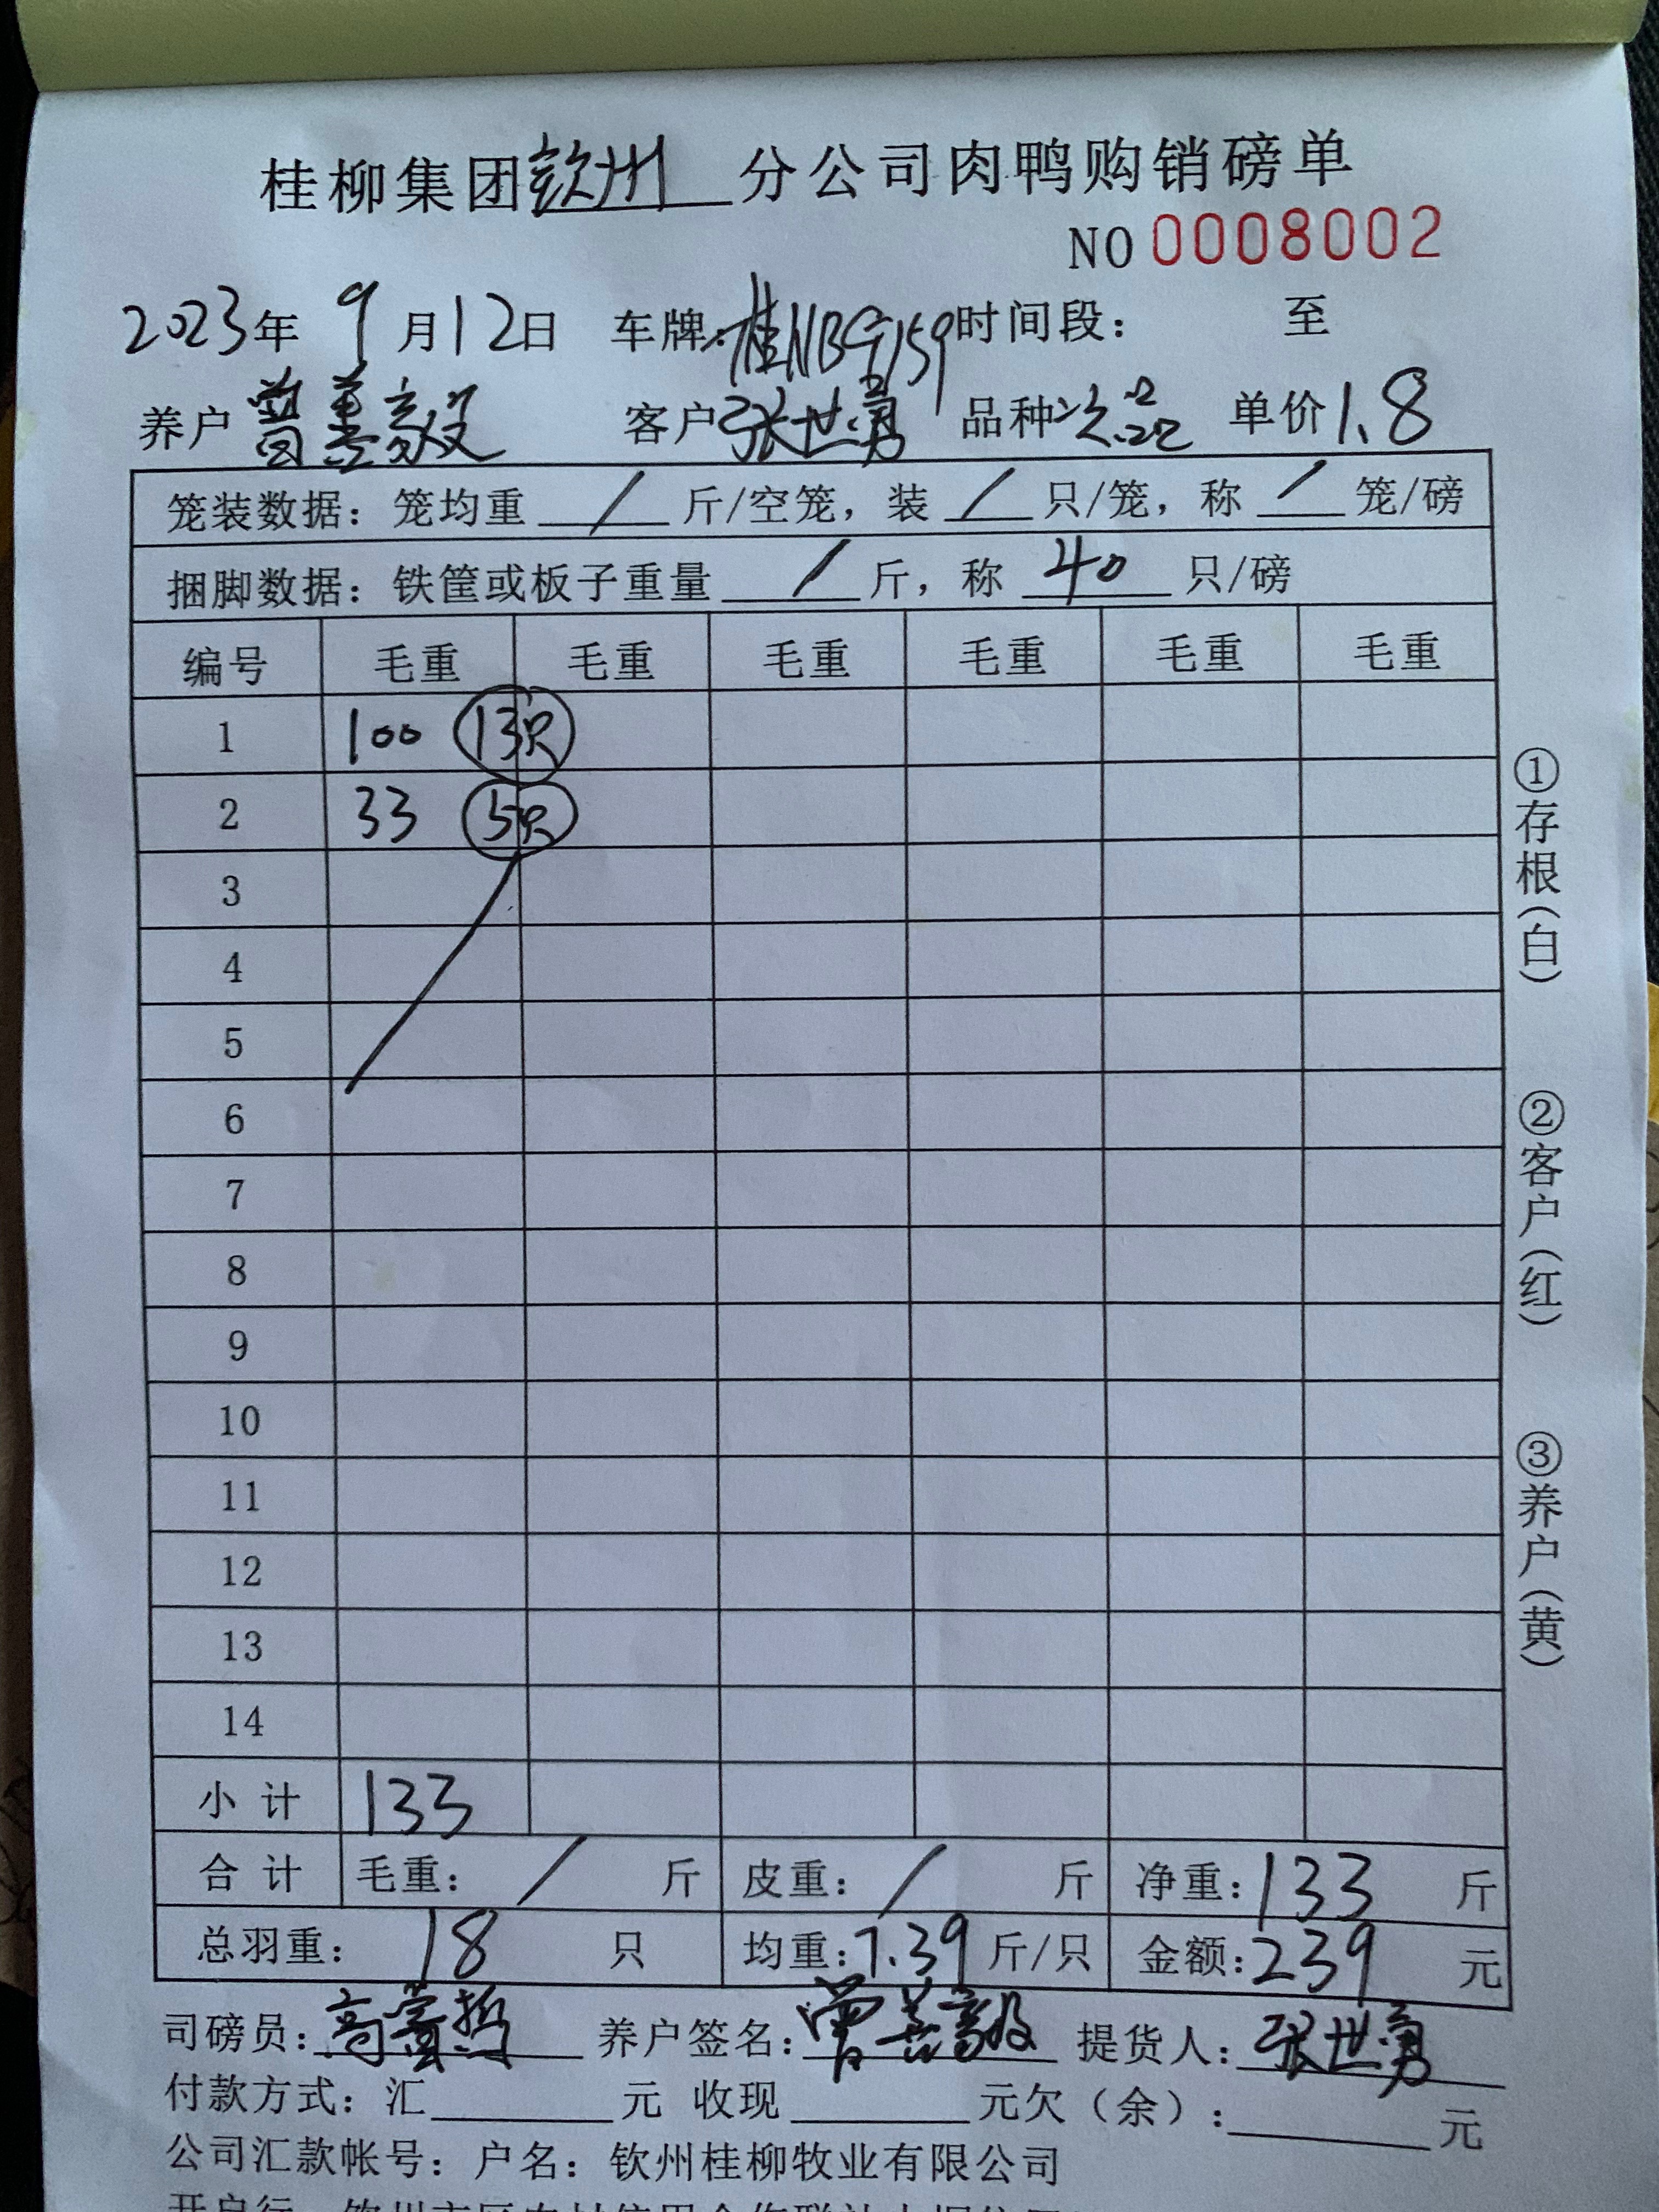 桂柳集团钦州分公司肉鸭购销磅单
NO 0008002
2023年 9月12日 车牌:桂NB9159 时间段: 至
养户 曾善毅 客户 张世勇 品种 次品 单价 1.8
笼装数据:笼均重 / 斤/空笼,装 / 只/笼,称 / 笼/磅
捆脚数据:铁筐或板子重量 / 斤,称 40 只/磅
编号 毛重 毛重 毛重 毛重 毛重 毛重
1 100 13只
2 33 5只
3
4
5
6
7
8
9
10
11
12
13
14
小计 133
合计 毛重: / 斤 皮重: / 斤 净重:133 斤
总羽重: 18 只 均重:7.39 斤/只 金额:239 元
司磅员: 养户签名:曾善毅 提货人:张世勇
付款方式:汇 元 收现 元欠(余): 元
公司汇款帐号:户名:钦州桂柳牧业有限公司
①存根(白)
②客户(红)
③养户(黄)